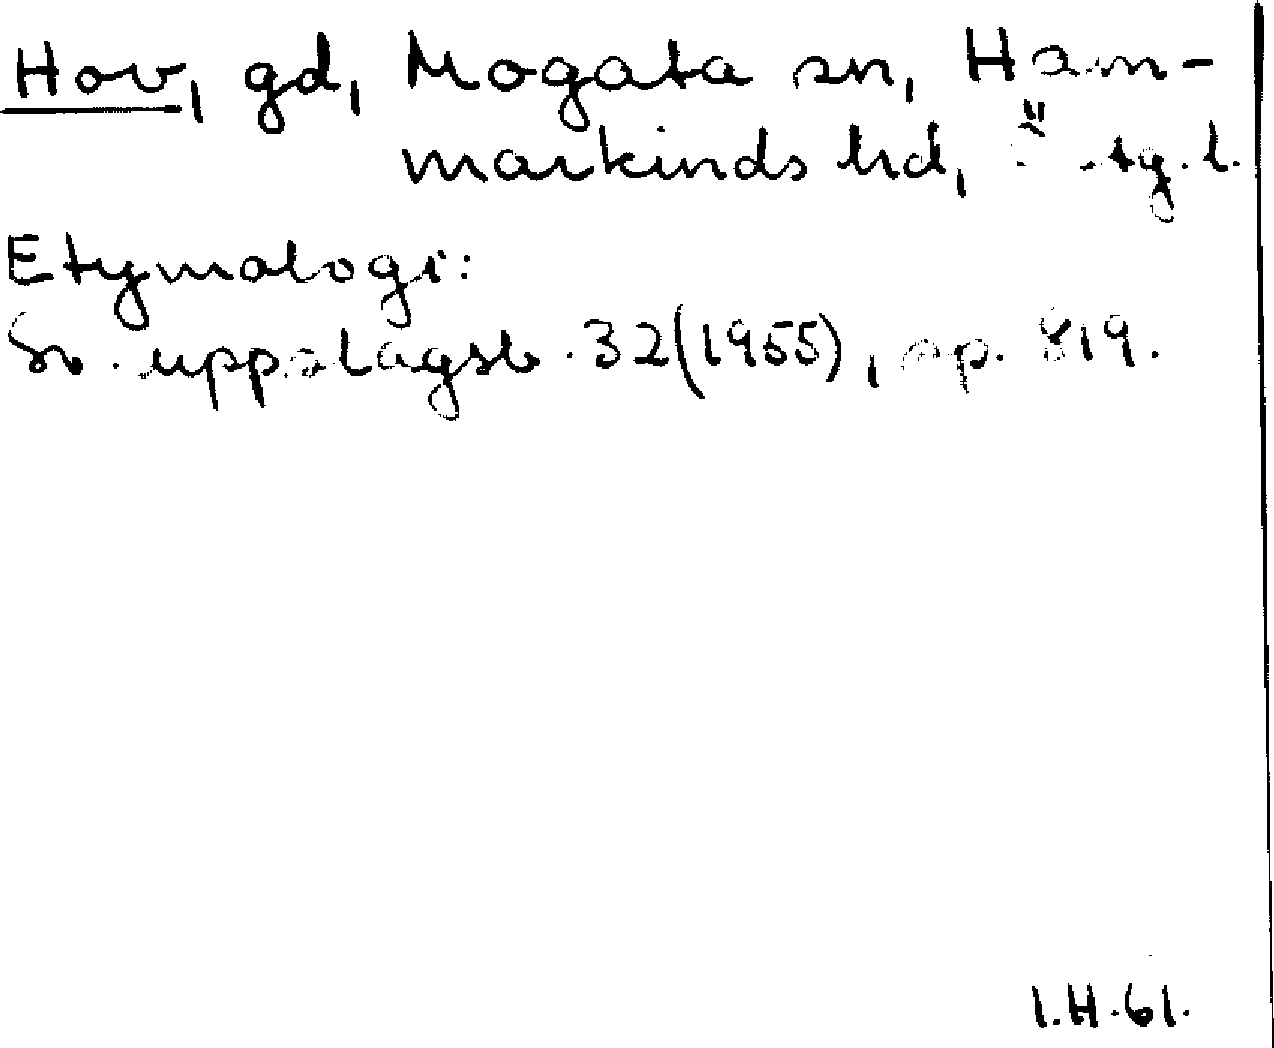 Hov, gd, Mogata sn, Ham-
markinds hd, Östg. l.
Etymologi:
Sv. uppslagsb. 32(1955), sp. 819.
I.H.61.